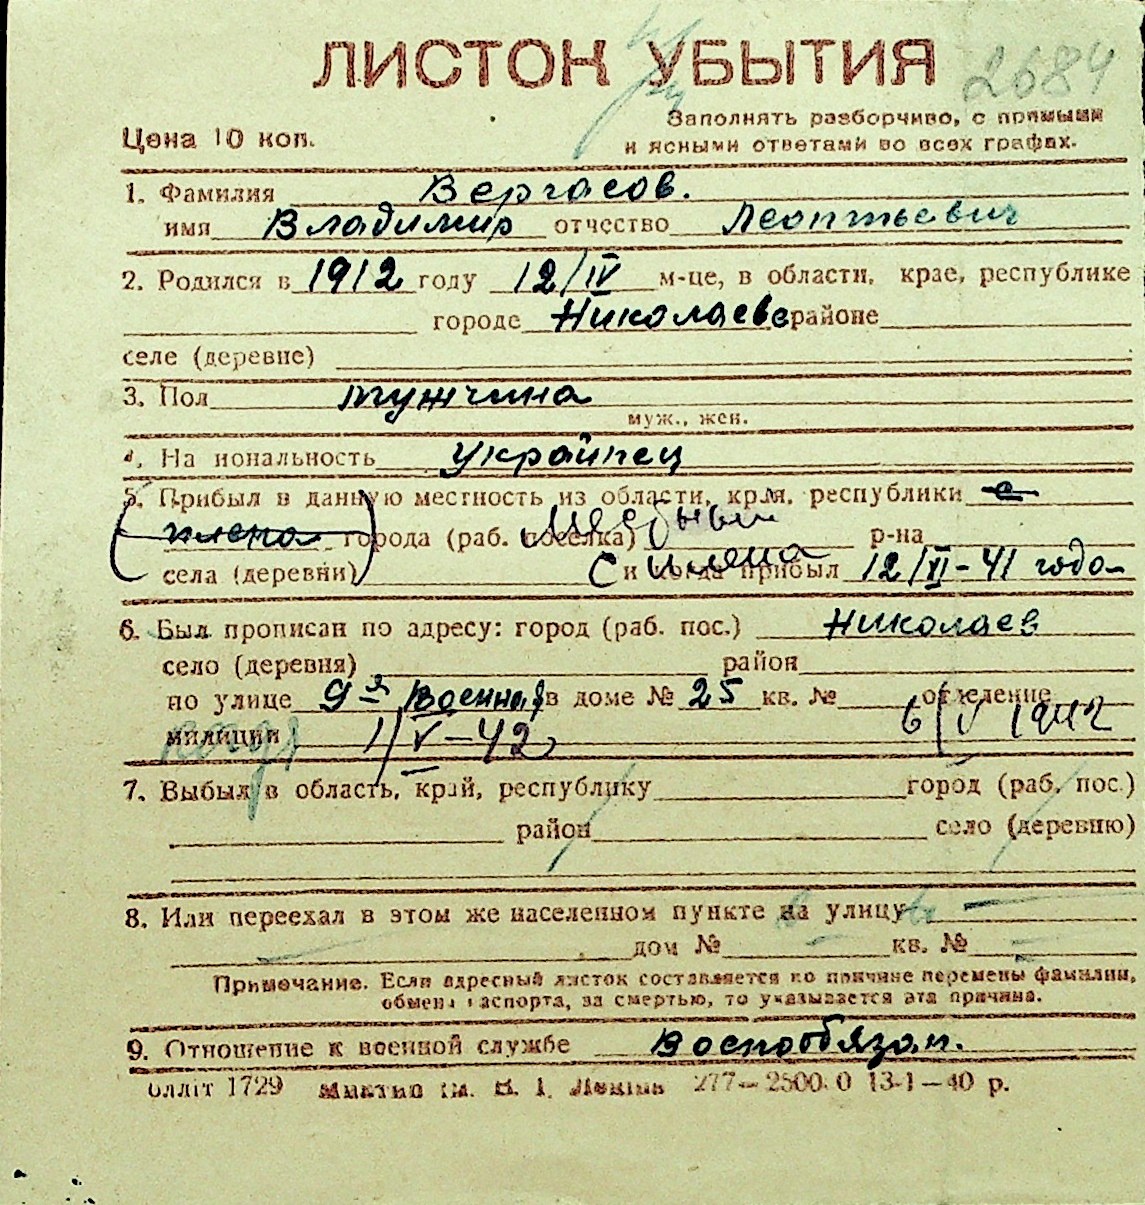 ЛИСТОК УБЫТИЯ 2684
Цена 10 коп.
Заполнять разборчиво, с прямыми
и ясными ответами во всех графах.
1. Фамилия Вергасов.
имя Владимир отчество Леонтьевич
2. Родился в 1912 году 12/IV м-це, в области, крае, республике
городе Николаеве районе
селе (деревне)
3. Пол мужчина
муж., жен.
На иональность украинец
5. Прибыл в данную местность из области, края, республики с
плена города (раб. поселка) р-на
села (деревни) С плена и когда прибыл 12/XI-41 года
6. Был прописан по адресу: город (раб. пос.) Николаев
село (деревня) район
по улице 9-я Военная в доме № 25 кв. № отделение
милиции 1/V-42 6/V 1942
7. Выбыл в область, край, республику город (раб. пос.)
район село (деревню)
8. Или переехал в этом же населенном пункте на улицу
дом № кв. №
Примечание. Если адресный листок составляется по причине перемены фамилии,
обмена паспорта, за смертью, то указывается эта причина.
9. Отношение к военной службе Военнообязан.
1729 277-2500.0 13-1-40 р.